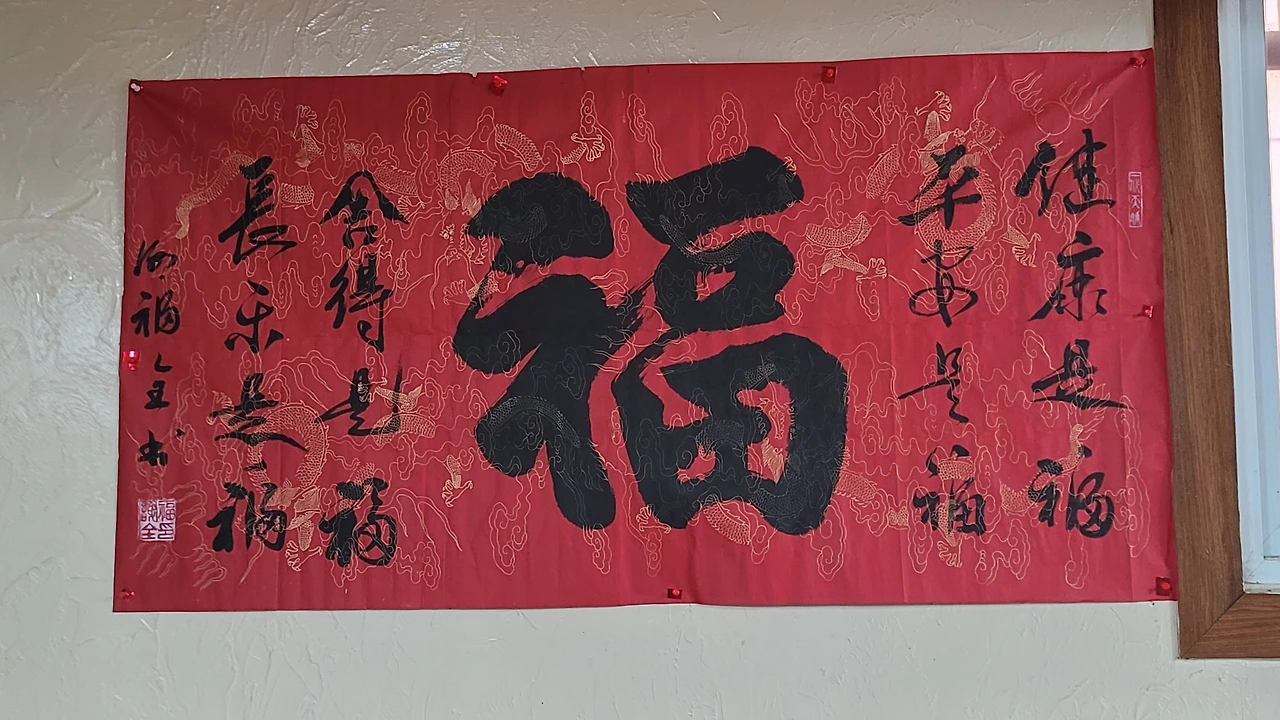 健康是福
平安是福
福
舍得是福
長乐是福
福全书